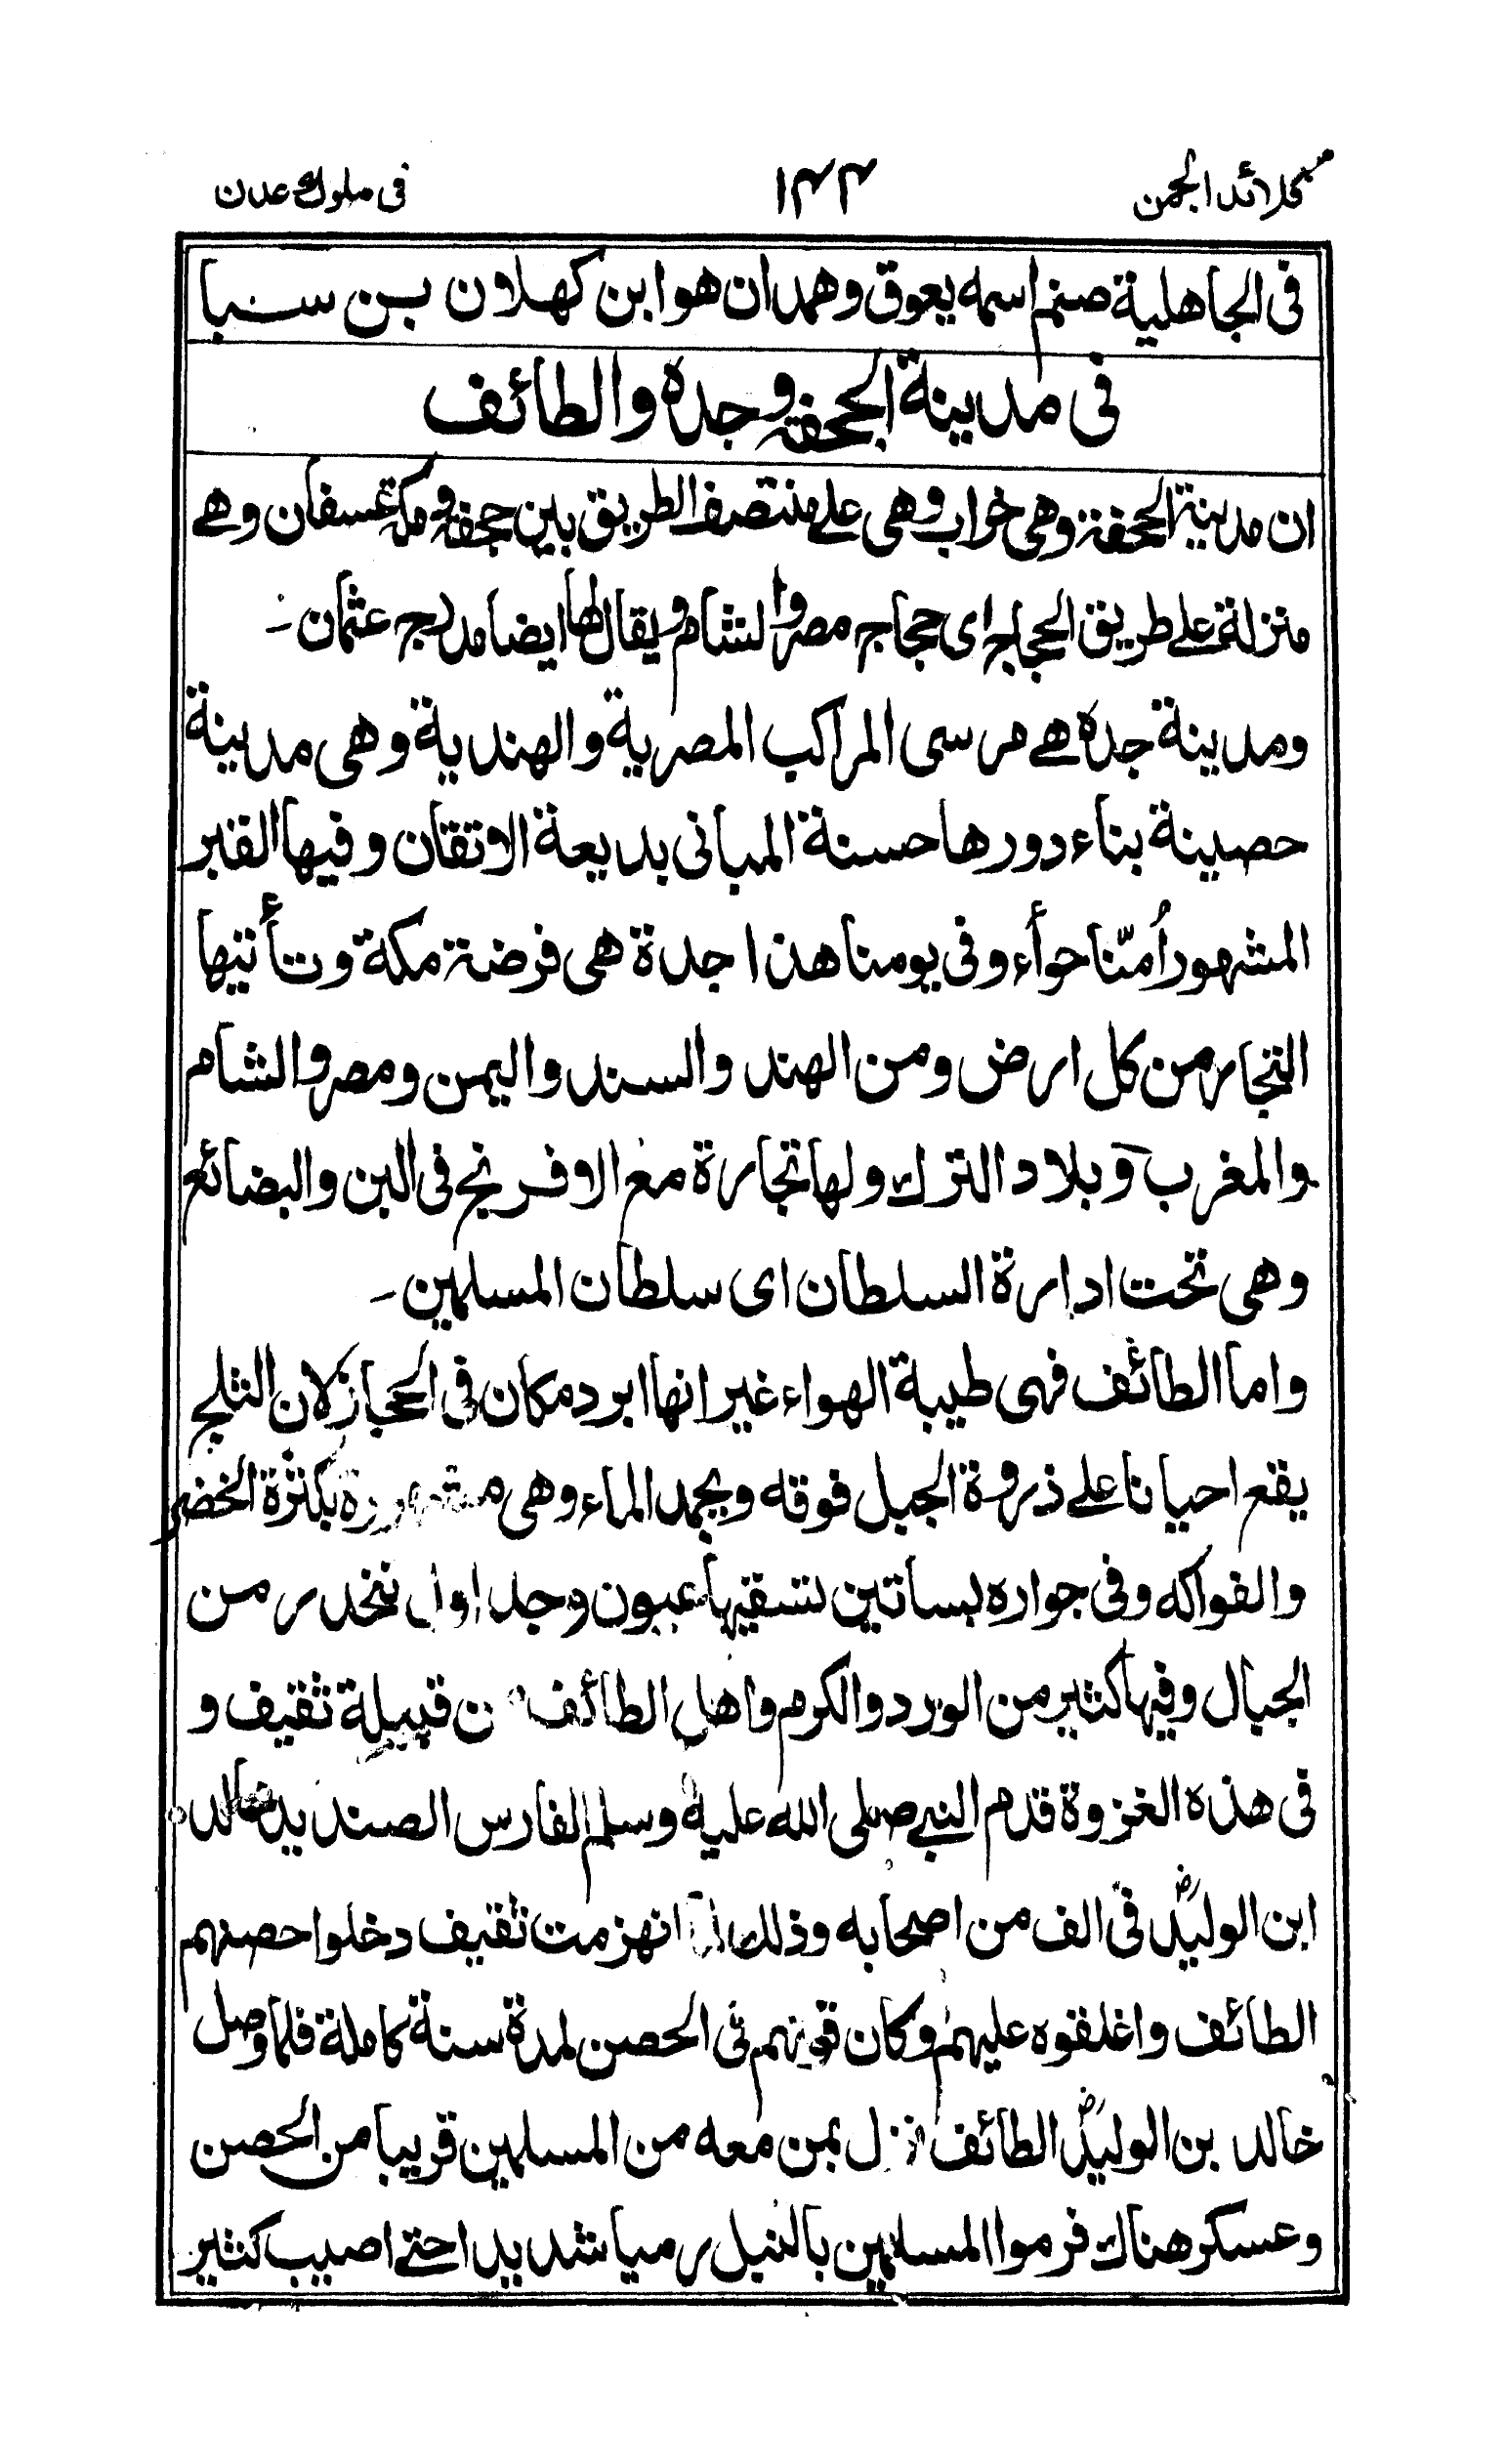 قلائد الجمن ١٤٤ فى ملوك عدن
فى الجاهلية صنم اسمه يعوق وهمدان هو ابن كهلان بن سبا
فى مدينة الجحفة وجدة والطائف
ان مدينة الجحفة وهى خراب وهى على منتصف الطريق بين جحفة ومكة عسفان وهے
منزلة على طريق الحجاج اى حجاج مصر والشام ويقال لها ايضا مدرج عثمان ۔
ومدينة جدة هے مرسى المراكب المصرية والهندية وهى مدينة
حصينة بناء دورها حسنة المبانى بديعة الاتقان وفيها القبر
المشهور أمّنا حوأء وفى يومنا هذا جدة هى فرضة مكة وتأتيها
التجار من كل ارض ومن الهند والسند واليمن ومصر والشام
والمغرب وبلاد الترك ولها تجارة مع الافرنج فى البن والبضائع
وهى تحت ادارة السلطان اى سلطان المسلمين ۔
واما الطائف فهى طيبة الهواء غير انها ابرد مكان فى الحجاز لان الثلج
يقع احيانا على ذروة الجبل فوقه ويجمد الماء وهى مشهورة بكثرة الخضر
والفواكه وفى جواره بساتين تسقيها عيون وجداول تنحدر من
الجبال وفيها كثير من الورد والكرم واهل الطائف من قبيلة ثقيف و
فى هذه الغزوة قدم النبے صلى الله عليه وسلم الفارس الصنديد خالد
ابن الوليدؓ فى الف من اصحابه وذلك انهزمت ثقيف دخلوا حصنهم
الطائف واغلقوه عليهم وكان قوتهم فى الحصن لمدة سنة كاملة فلما وصل
خالد بن الوليدؓ الطائف نزل بمن معه من المسلمين قريبا من الحصن
وعسكر هناك فرموا المسلمين بالنبل رميا شديدا حتے اصيب كثير